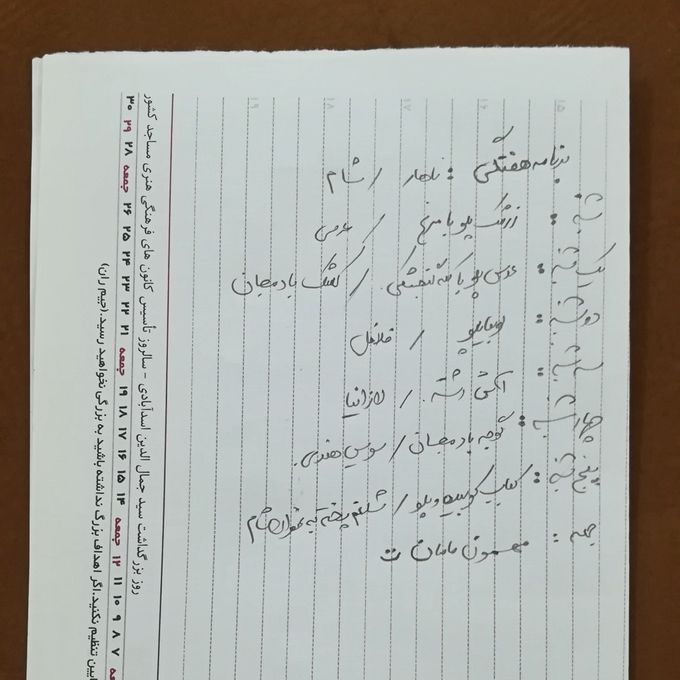 برنامه هفتگی : ناهار / شام
شنبه : زرشک پلو با مرغ / عدسی
یکشنبه : عدس پلو با کته گنجشکی / کشک بادمجان
دوشنبه : لوبیاپلو / فلافل
سه شنبه : آش رشته / لازانیا
چهارشنبه : گوجه بادمجان / سوسیس هندی.
پنج شنبه : کباب کوبیده و پلو / شلغم پخته به عنوان شام
جمعه : مهمون مامان ت
روز بزرگداشت سید جمال الدین اسدآبادی - سالروز تأسیس کانون های فرهنگی هنری مساجد کشور
۷ ۸ ۹ ۱۰ ۱۱ ۱۲ جمعه ۱۴ ۱۵ ۱۶ ۱۷ ۱۸ ۱۹ جمعه ۲۱ ۲۲ ۲۳ ۲۴ ۲۵ ۲۶ جمعه ۲۸ ۲۹ ۳۰
پایین تنظیم نکنید. اگر اهداف بزرگ نداشته باشید به بزرگی نخواهید رسید. (جیم ران)
۱۵
۱۶
۱۷
۱۸
۱۹